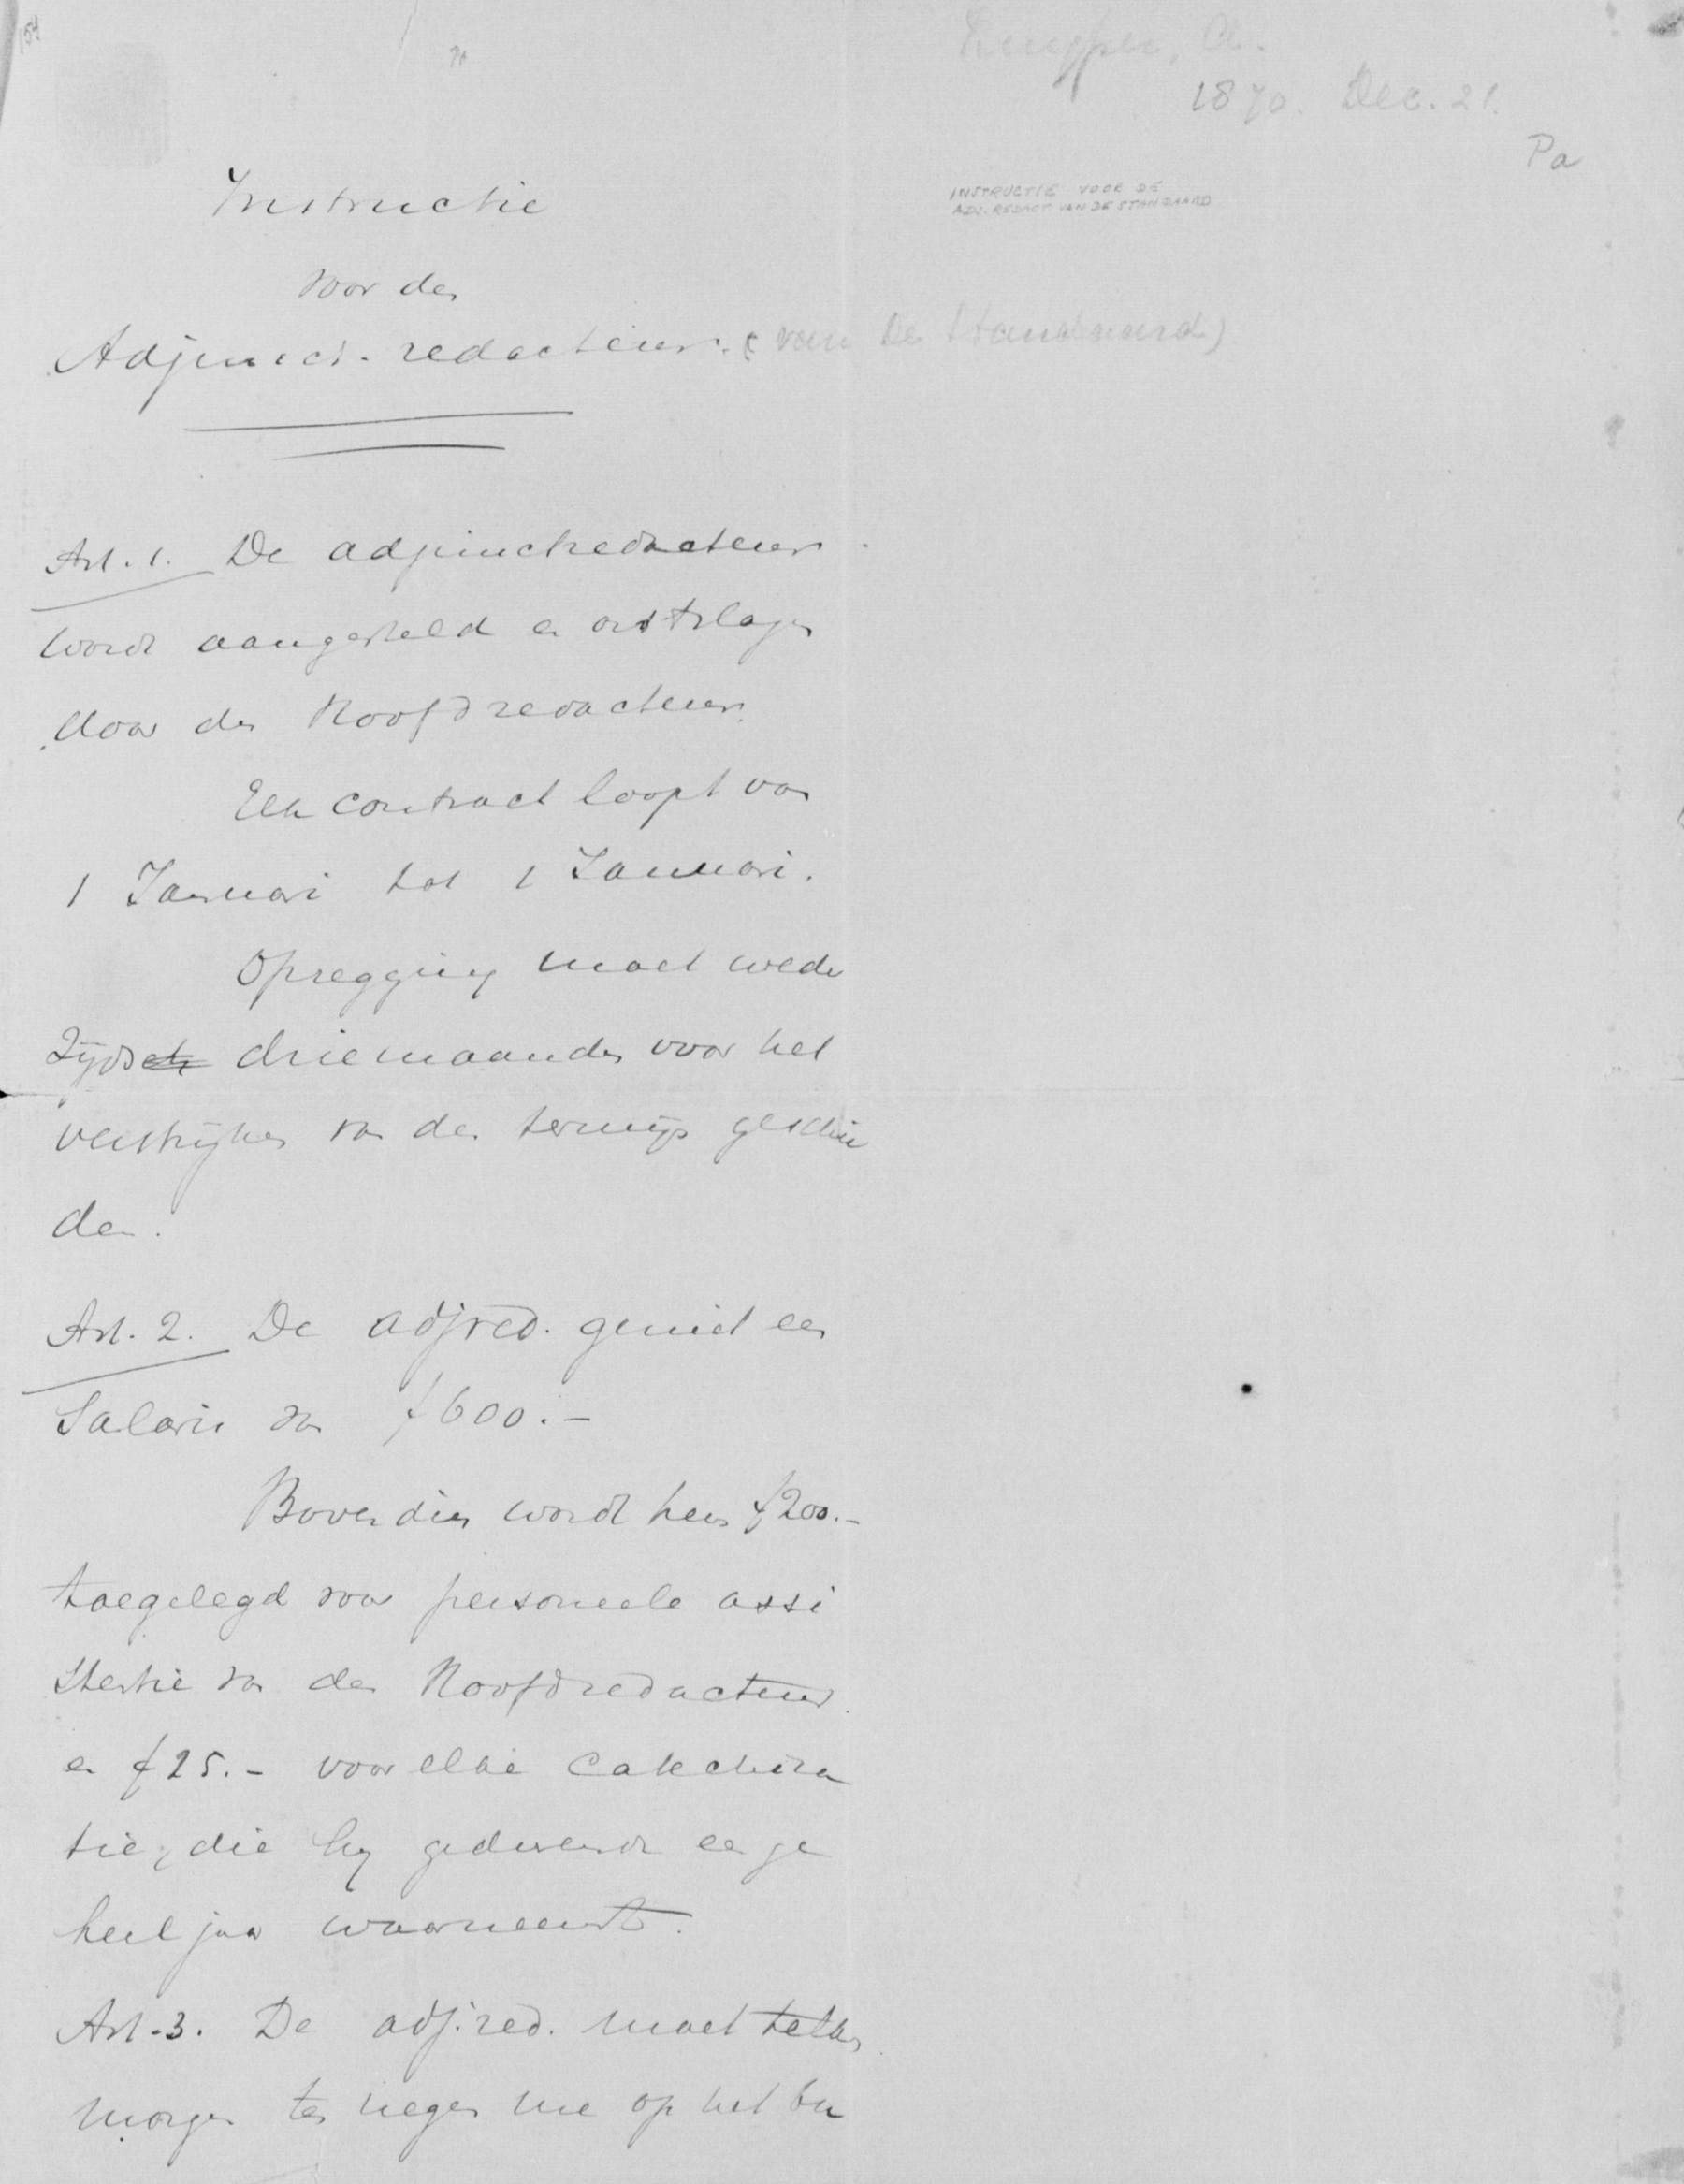 Kuyper, A.
1870. Dec. 21.
Pa
INSTRUCTIE VOOR DE
ADJ. REDACT VAN DE STANDAARD
Instructie
voor den
Adjunct-redacteur. (van De Standaard)
Art. 1. De adjunctredacteur
wordt aangesteld en ontslagen
door den Hoofdredacteur.
Elk contract loopt van
1 Januari tot 1 Januari.
Opzegging moet weder
zijds driemaanden voor het
verstrijken van den termijn geschie
den.
Art. 2. De adjred. geniet een
Salaris van ƒ600.-
Bovendien wordt hem ƒ200.-
toegelegd voor personeele assi
stentie van den Hoofdredacteur
en ƒ25.- voor elke catechisa
tie, die hij gedurende een ge
heel jaar waarneemt.
Art. 3. De adj. red. moet telken
morgen ten negen ure op het bu